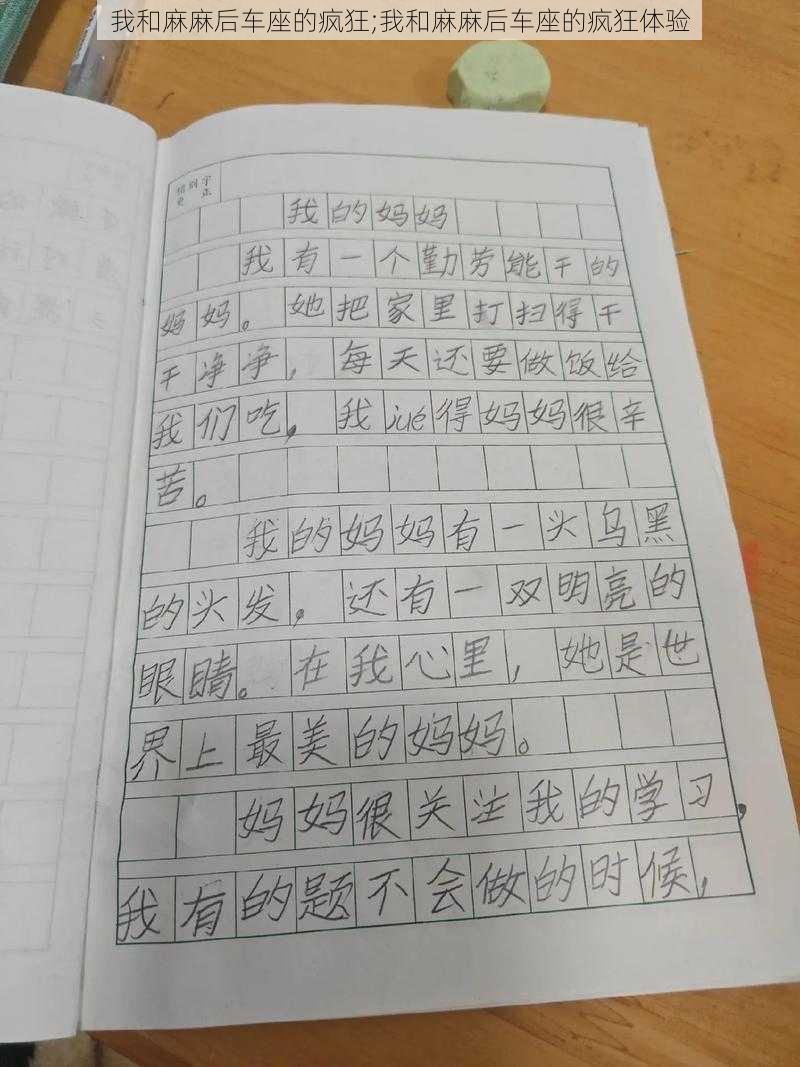 我和麻麻后车座的疯狂;我和麻麻后车座的疯狂体验
我的妈妈
我有一个勤劳能干的
妈妈。她把家里打扫得干
干净净，每天还要做饭给
我们吃，我jué得妈妈很辛
苦。
我的妈妈有一头乌黑
的头发，还有一双明亮的
眼睛。在我心里，她是世
界上最美的妈妈。
妈妈很关注我的学习，
我有的题不会做的时候，